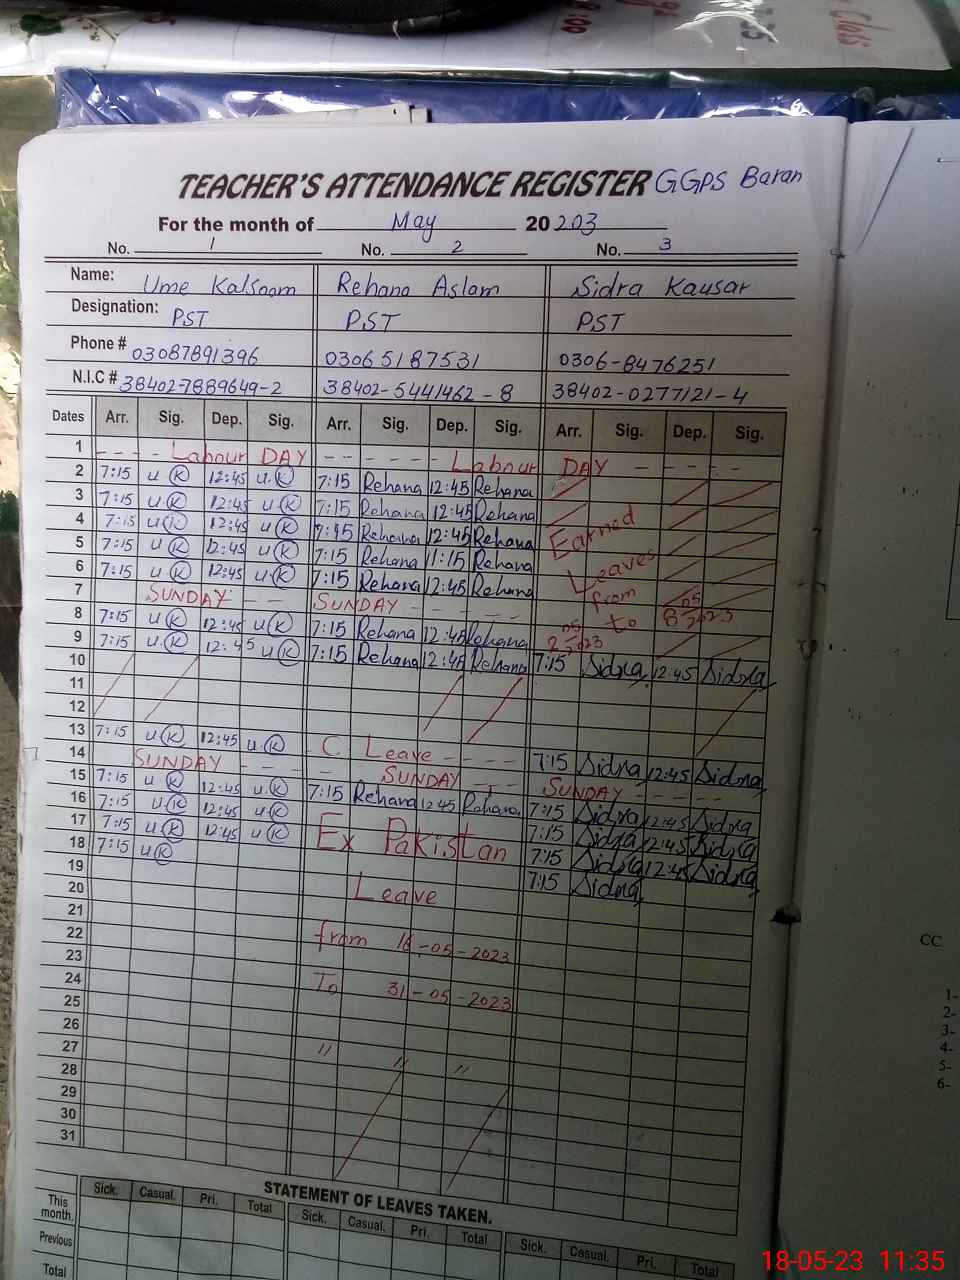 TEACHER'S ATTENDANCE REGISTER GGPS Baran
For the month of May 20 203
No. 1 No. 2 No. 3
Name: Ume Kalsoom Rehana Aslam Sidra Kausar
Designation: PST PST PST
Phone # 03087891396 03065187531 0306-8476251
N.I.C # 38402-7889649-2 38402-5441462-8 38402-0277121-4
Dates Arr. Sig. Dep. Sig. Arr. Sig. Dep. Sig. Arr. Sig. Dep. Sig.
1 - - - - Labour DAY - - - - - - Labour DAY - - - - -
2 7:15 U K 12:45 U.K 7:15 Rehana 12:45 Rehana
3 7:15 U.K 12:45 U.K 7:15 Rehana 12:45 Rehana
4 7:15 U K 12:45 U K 7:45 Rehana 12:45 Rehana Earned
5 7:15 U K 12:45 U K 7:15 Rehana 11:15 Rehana
6 7:15 U.K 12:45 U.K 7:15 Rehana 12:45 Rehana Leaves
7 SUNDAY - - SUNDAY - - - - - from
8 7:15 U K 12:45 U K 7:15 Rehana 12:45 Rehana to
9 7:15 U.K 12:45 U K 7:15 Rehana 12:45 Rehana
10 7:15 Sidra 12:45 Sidra
11
12
13 7:15 U K 12:45 U.K - C. Leave - - - - 7:15 Sidra 12:45 Sidra
14 SUNDAY - - - - SUNDAY - - - SUNDAY - - - -
15 7:15 U K 12:45 U.K 7:15 Rehana 12:45 Rehana 7:15 Sidra 12:45 Sidra
16 7:15 U K 12:45 U.K Ex Pakistan 7:15 Sidra 12:45 Sidra
17 7:15 U K 12:45 U K 7:15 Sidra 12:45 Sidra
18 7:15 U K Leave 7:15 Sidra
19
20
21
22 from 16-05-2023
23
24 To 31-05-2023
25
26
27 〃 〃 〃
28
29
30
31
STATEMENT OF LEAVES TAKEN.
Sick. Casual. Pri. Total Sick. Casual. Pri. Total Sick. Casual. Pri. Total
This month.
Previous
Total
CC
1-
2-
3-
4-
5-
6-
18-05-23 11:35